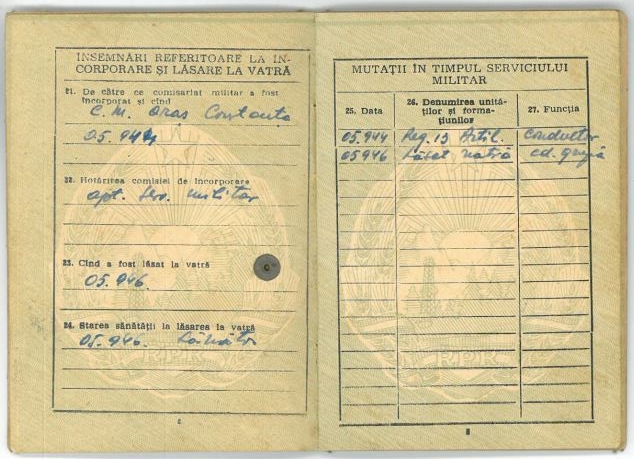 INSEMNĂRI REFERITOARE LA IN-
CORPORARE ȘI LĂSARE LA VATRĂ
21. De către ce comisariat militar a fost
încorporat și cînd
C. M. Oras Constanța
05.944
22. Hotărîrea comisiei de încorporare
apt. serv. militar
23. Cînd a fost lăsat la vatră
05.946.
24. Starea sănătății la lăsarea la vatră
05.946. Sănătos
RPR
4
MUTAȚII ÎN TIMPUL SERVICIULUI
MILITAR
25. Data
26. Denumirea unită-
ților și forma-
țiunilor
27. Funcția
05.944 Reg. 13 Artil. Conductor
05946 Lăsat vatră cd. grupă
RPR
5